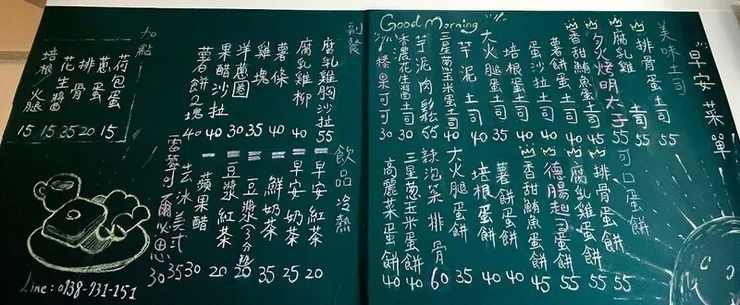 早安菜單
Good Morning
美味土司
排骨蛋土司 55
腐乳雞土司 55
夕火烤明太子 55
香甜鮪魚蛋土司 45
蛋沙拉土司 40
薯餅蛋土司 40
培根蛋土司 40
大火腿蛋土司 35
芋泥土司 40
三星蔥玉米蛋土司 40
芋泥肉鬆 55
香濃花生醬土司 30
榛果可可 30
可口蛋餅
排骨蛋餅 55
腐乳雞蛋餅 55
德腸起司蛋餅 55
香甜鮪魚蛋餅 45
薯餅蛋餅 40
培根蛋餅 40
大火腿蛋餅 35
辣泡菜排骨 60
三星蔥玉米蛋餅 40
高麗菜蛋餅 40
副餐
腐乳雞胸沙拉 55
腐乳雞柳 40
薯條 40
雞塊 35
洋蔥圈 30
果醋沙拉 40
薯餅2塊 40
飲品冷熱
早安紅茶 20
早安奶茶 25
鮮奶茶 35
豆漿(3分甜) 20
豆漿紅茶 20
蘋果醋 30
去冰美式 35
可爾必思 30
加點
荷包蛋 15
蔥蛋 20
排骨 35
花生醬 15
培根 火腿 15
Line: 0938-731-151